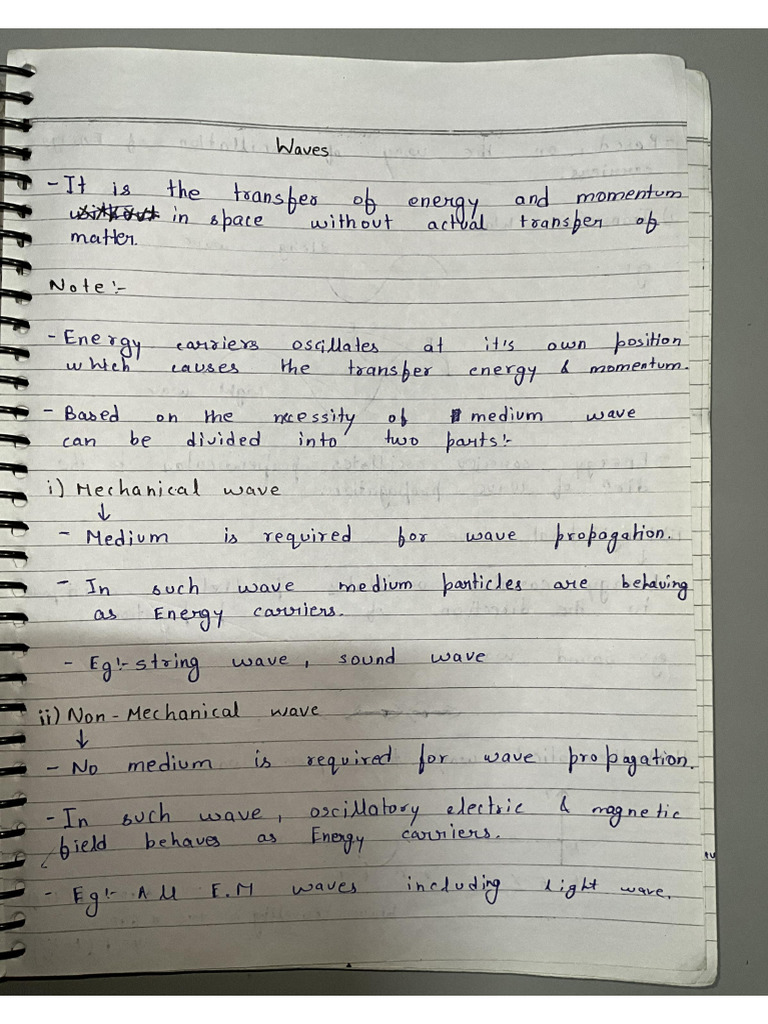 Waves
- It is the transfer of energy and momentum
in space without actual transfer of
matter.
Note :-
- Energy carriers oscillates at it's own position
which causes the transfer energy & momentum.
- Based on the necessity of medium wave
can be divided into two parts :-
i) Mechanical wave
↓
- Medium is required for wave propagation.
- In such wave medium particles are behaving
as Energy carriers.
- Eg :- string wave, sound wave
ii) Non-Mechanical wave
↓
- No medium is required for wave propagation.
- In such wave, oscillatory electric & magnetic
field behaves as Energy carriers.
- Eg :- All E.M waves including light wave.